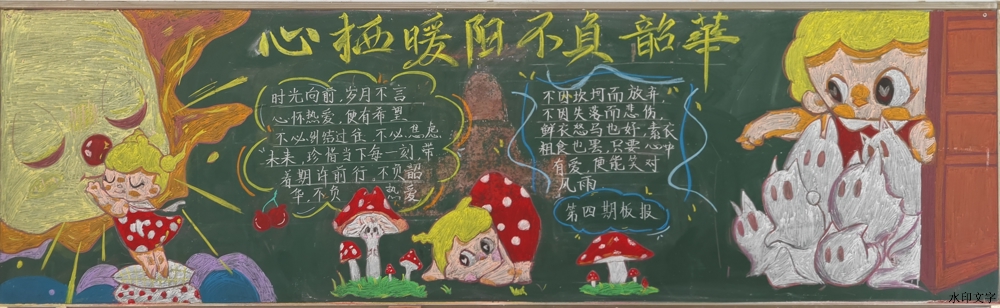 心栖暖阳不负韶華
时光向前，岁月不言
心怀热爱，便有希望
不必纠结过往，不必焦虑
未来，珍惜当下每一刻，带
着期许前行，不负韶
华，不负热爱
不因坎坷而放弃，
不因失落而悲伤，
鲜衣怒马也好，素衣
粗食也罢，只要心中
有爱，便能笑对
风雨
第四期板报
水印文字